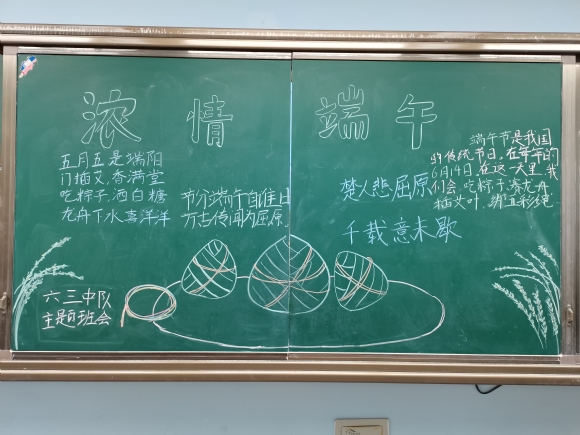 浓情端午
五月五是端阳
门插艾,香满堂
吃粽子,洒白糖
龙舟下水喜洋洋
节分端午自谁言
万古传闻为屈原
楚人悲屈原
千载意未歇
端午节是我国
的传统节日,在每年的
6月14日,在这一天里,我
们会吃粽子,赛龙舟
插艾叶,绑五彩绳
六三中队
主题班会